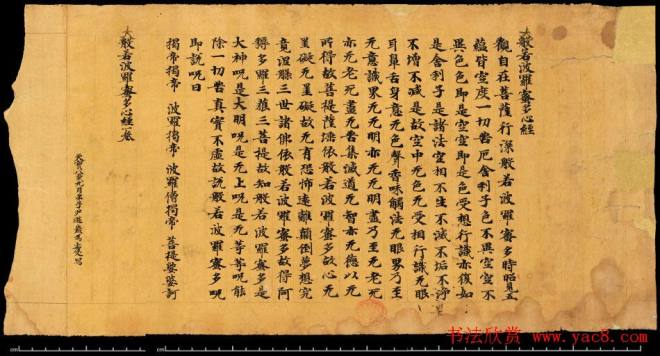 大般若波羅蜜多心經
觀自在菩薩行深般若波羅蜜多時照見五
蘊皆空度一切苦厄舍利子色不異空空不
異色色即是空空即是色受想行識亦復如
是舍利子是諸法空相不生不滅不垢不淨
不增不減是故空中无色无受相行識无眼
耳鼻舌身意无色聲香味觸法无眼界乃至
无意識界无无明亦无无明盡乃至无老死
亦无老死盡无苦集滅道无智亦无德以无
所得故菩提薩埵依般若波羅蜜多故心无
罣礙无罣礙故无有恐怖遠離顛倒夢想究
竟涅槃三世諸佛依般若波羅蜜多故得阿
耨多羅三藐三菩提故知般若波羅蜜多是
大神呪是大明呪是无上呪是无等等呪能
除一切苦真實不虛故說般若波羅蜜多呪
即說呪曰
揭帝揭帝 波羅揭帝 波羅僧揭帝 菩提娑婆訶
大般若波羅蜜多心經一卷
书法欣赏
www.yac8.com